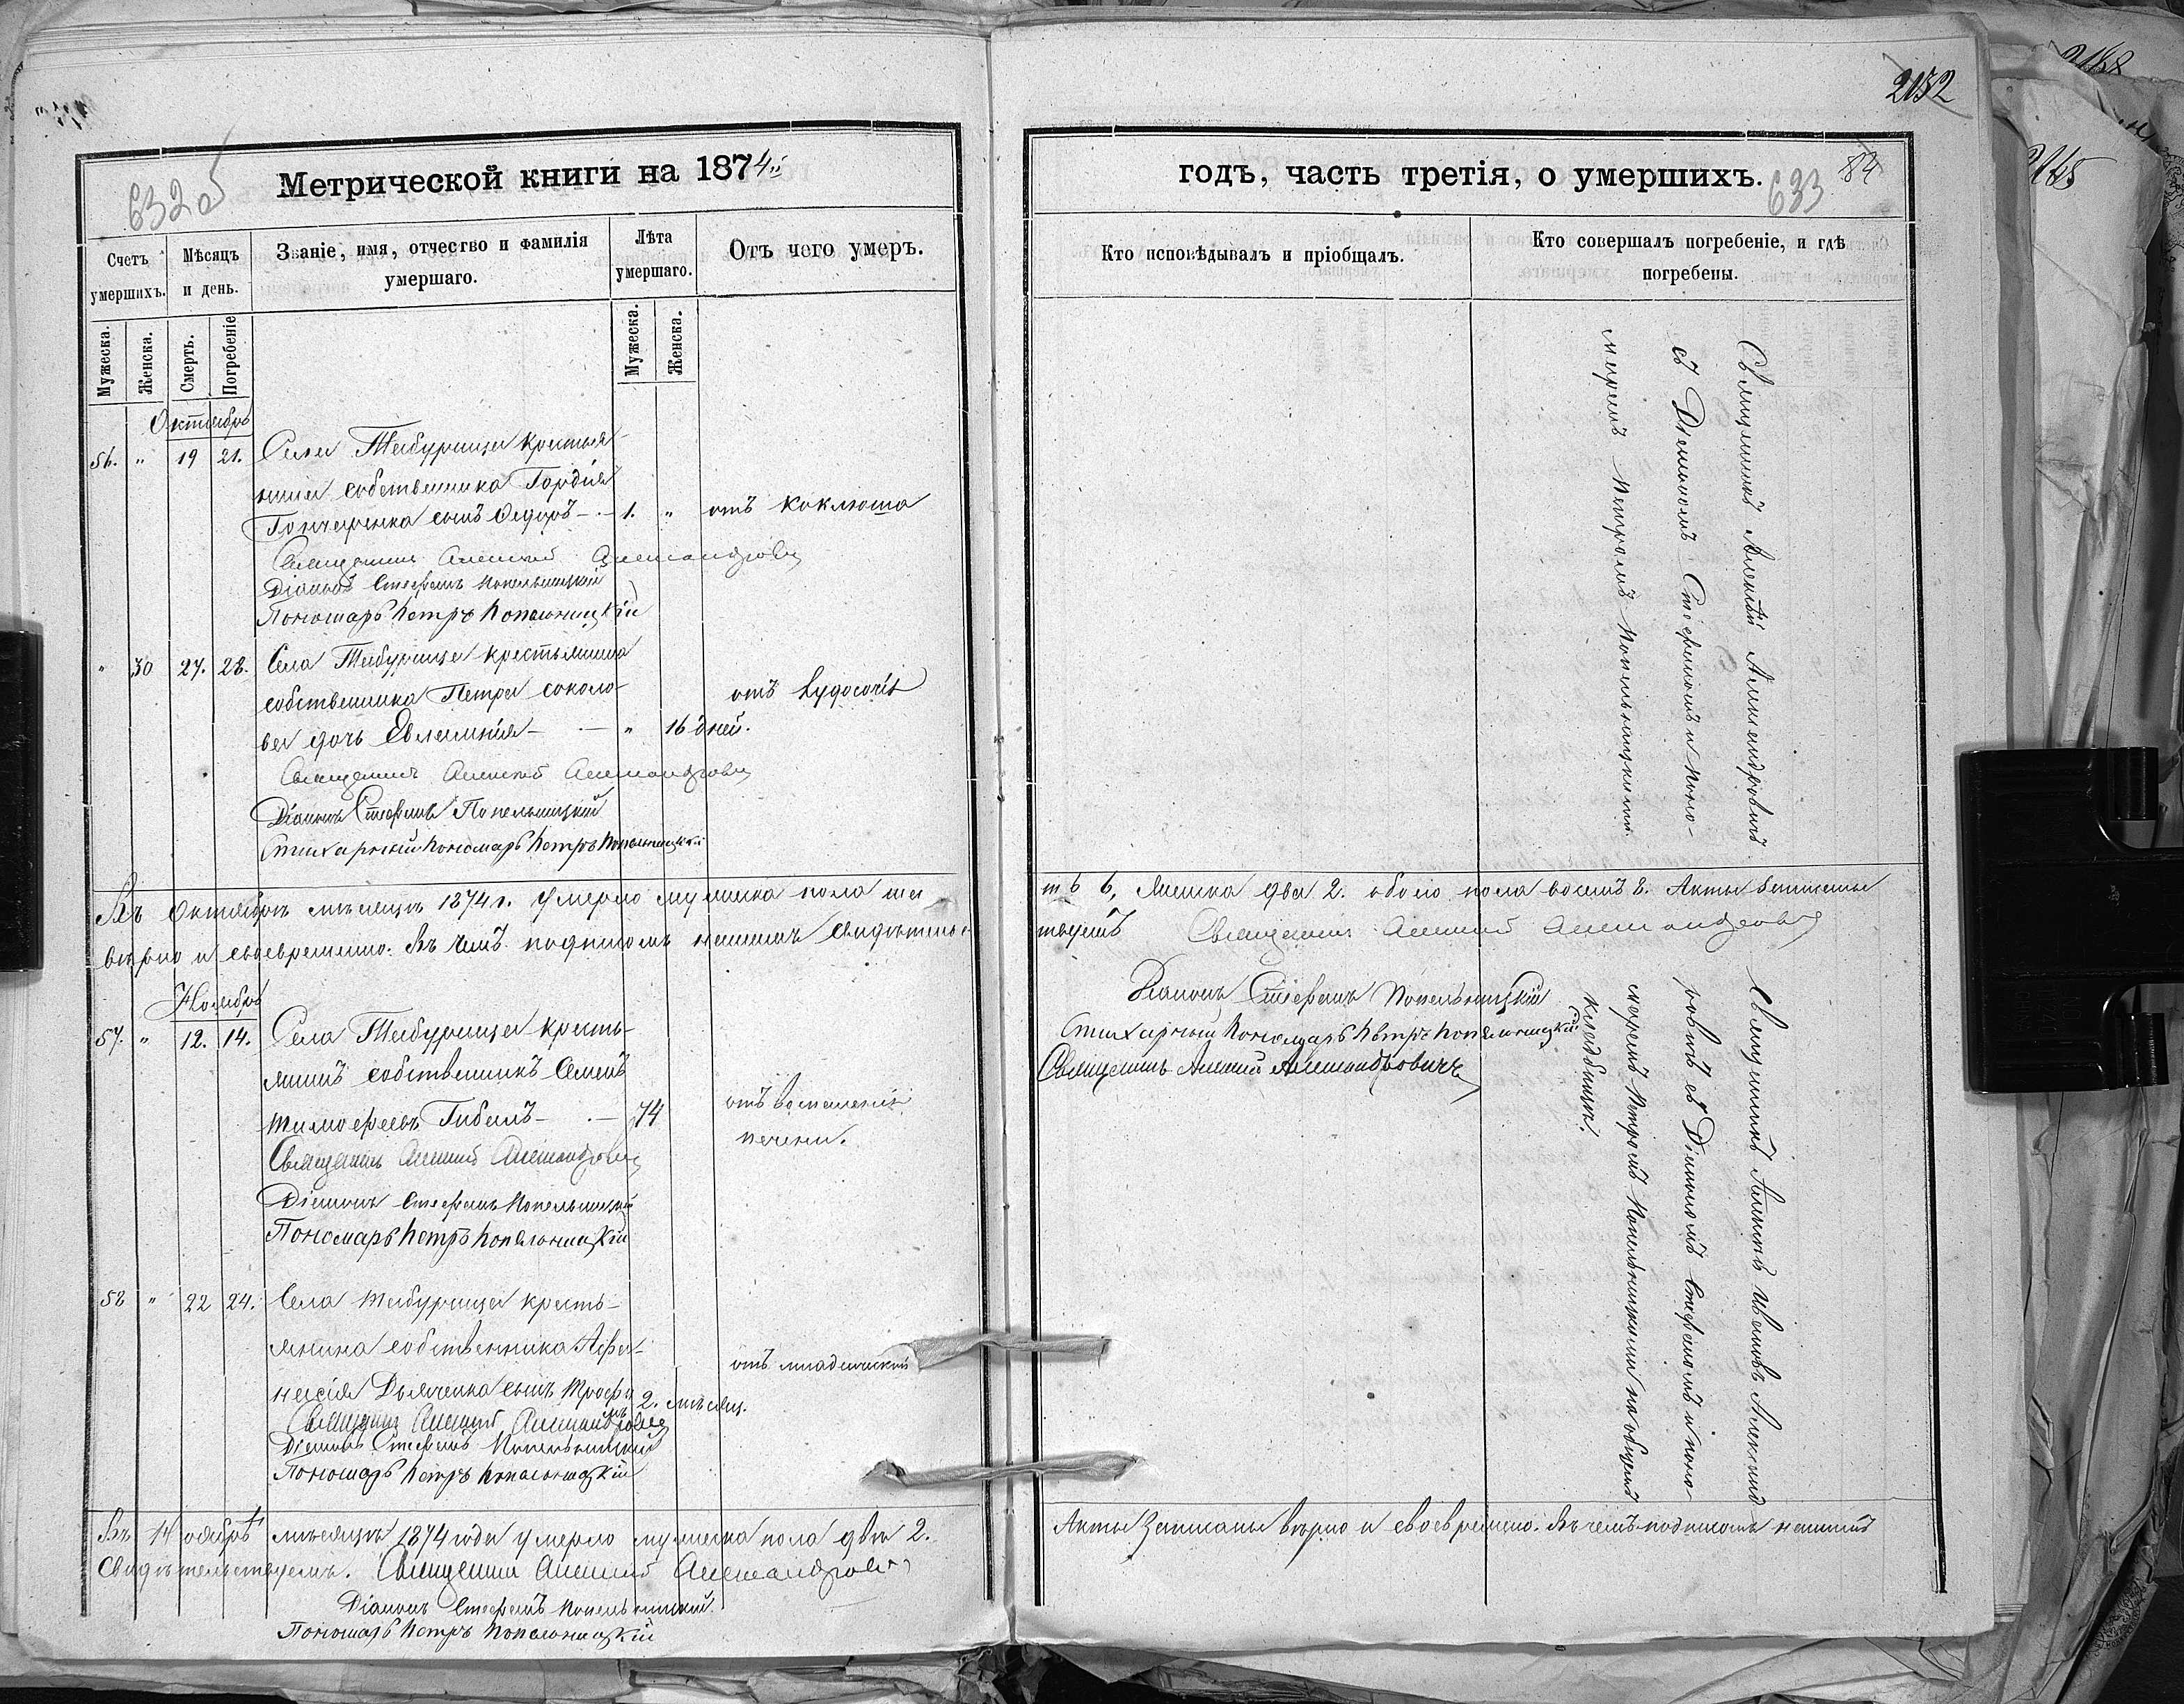 632 об
Метрической книги на 1874й
Счетъ умершихъ.
Мѣсяцъ и день.
Званіе, имя, отчество и фамилія умершаго.
Лѣта умершаго.
Отъ чего умеръ.
Мужеска.
Женска.
Смерть.
Погребеніе
Мужеска.
Женска.
Октябрь
56. " 19 21. Села Жабурища крестья-
нина собственника Гордія
Гончаренка сынъ Ѳедоръ - 1. " отъ коклюша
Священникъ Алексій Александровичъ
Діаконъ Стефанъ Попельницкій
Пономарь Петръ Попельницкій
" 30 27. 28. Села крестьянина
собственника Петра Соколо-
ва дочь Евлампія - " 16 дней. отъ худосочія
Священникъ Алексій Александровичъ
Діаконъ Стефанъ Попельницкій
Стихарный Пономарь Петръ Попельницкій
Въ Октябрѣ мѣсяцѣ 1874 г. Умерло мужеска пола шес
вѣрно и своевременно. Въ чемъ подписомъ нашимъ свидѣтельс
Ноябрь
57. " 12. 14. Села кресть-
янинъ собственникъ Семенъ
Тимофеевъ - 74 отъ воспаленія
печени.
Священникъ Алексій Александровичъ
Діаконъ Стефанъ Попельницкій
Пономарь Петръ Попельницкій
58 " 22 24. Села кресть-
янина собственника Афа-
насія Дьяченка сынъ Трофи
мъ 2. мѣсяц. отъ младенческой
Священникъ Алексій Александровичъ
Діаконъ Стефанъ Попельницкій
Пономарь Петръ Попельницкій
Въ Ноябрѣ мѣсяцѣ 1874 года умерло мужеска пола два 2.
свидѣтельствуемъ. Священникъ Алексій Александровичъ
Діаконъ Стефанъ Попельницкій.
Пономарь Петръ Попельницкій
2132
годъ, часть третія, о умершихъ.
633
84
Кто исповѣдывалъ и пріобщалъ.
Кто совершалъ погребеніе, и гдѣ погребены.
Священникъ Алексѣй Александровичъ
съ Діакономъ Стефаномъ и поно-
маремъ Петромъ Попельницкими.
ть 6, женска два 2. обоего пола восемь 8. Акты записаны
твуемъ Священникъ Алексій Александровичъ
Діаконъ Стефанъ Попельницкій
Стихарный Пономарь Петръ Попельницкій
Священникъ Алексій Александровичъ
Священникъ Алексѣй Ивановъ Александ
ровичъ съ Діакономъ Стефаномъ и поно-
маремъ Петромъ Попельницкими на общемъ
кладбищѣ.
Акты записаны вѣрно и своевременно. Въ чемъ подписомъ нашимъ
2165